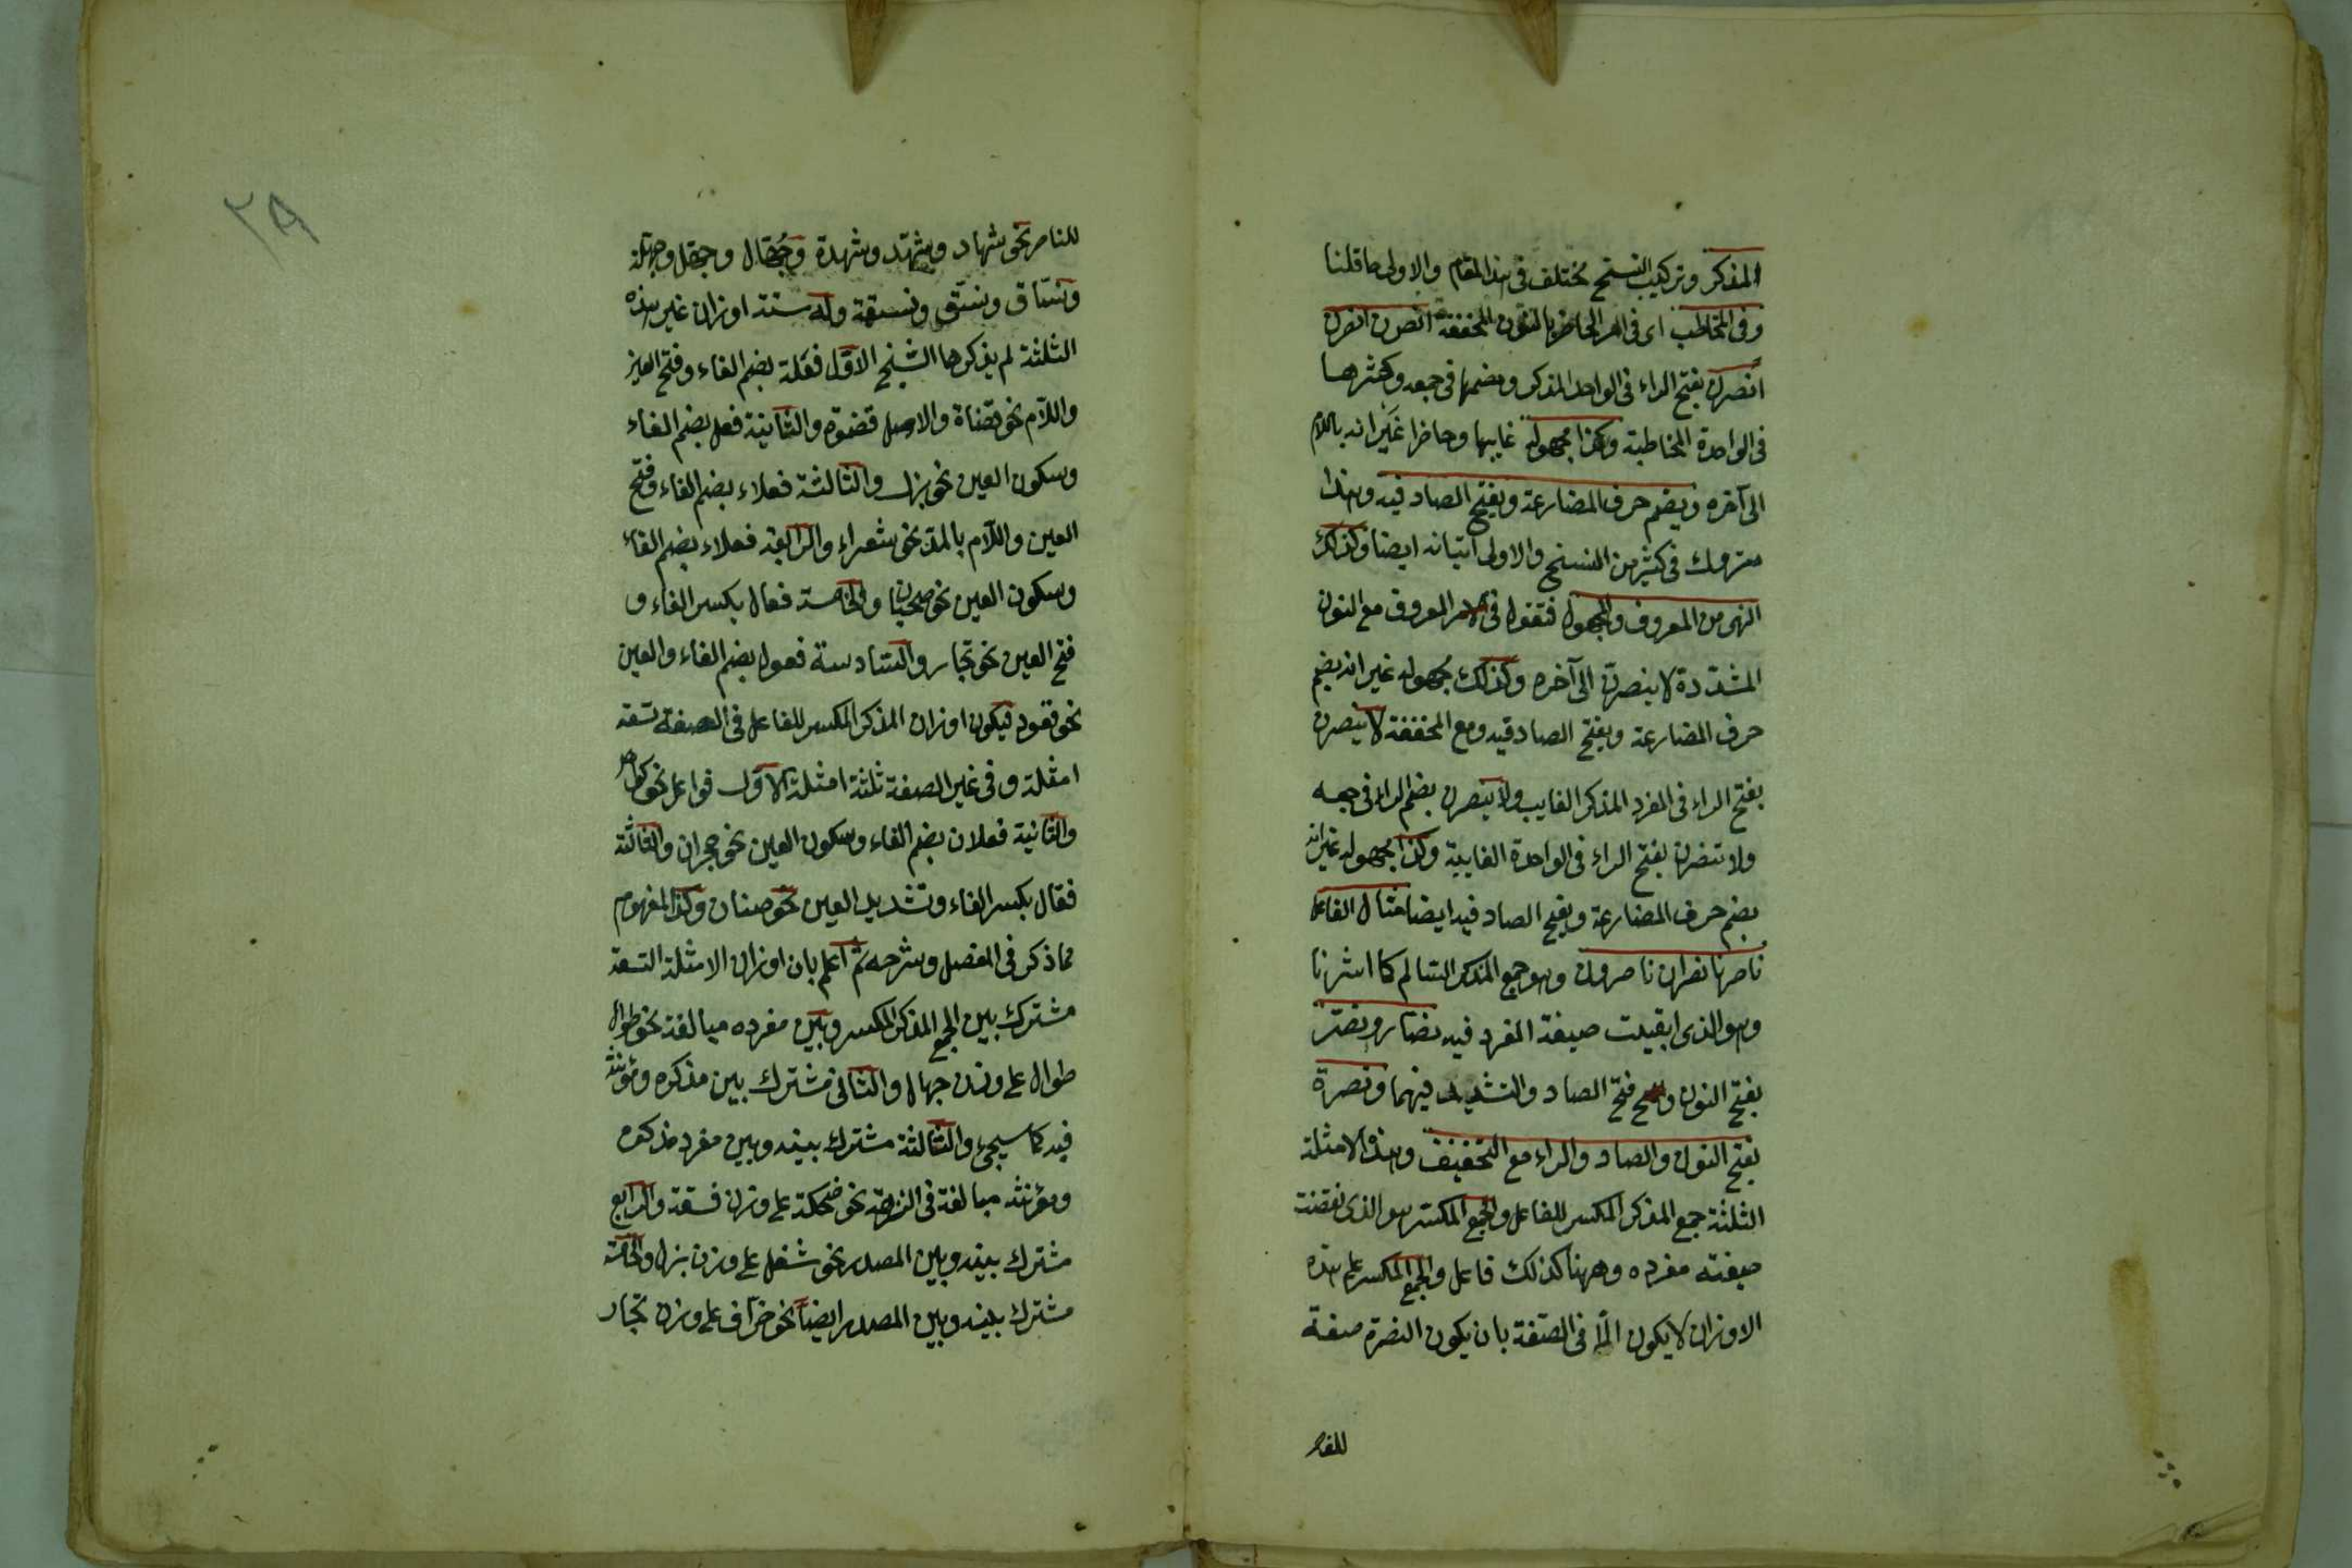 المذكر وتركيب النسخ مختلف فى هذا المقام والاولى ما قلنا
وفى المخاطب اى فى امر الحاضر بالنون المخففة انصرن انصرن
انصرن بفتح الراء فى الواحد المذكر وبضمها فى جمعه وكسرها
فى الواحدة المخاطبة وكذا مجهوله غايبا وحاضرا غير انه باللام
الى آخره ويضم حرف المضارعة ويفتح الصاد فيه وهذا
متروك فى كثير من النسخ والاولى اتيانه ايضا وكذلك
النهى من المعروف والمجهول فتقول فى الامر المعروف مع النون
المشددة لا ينصرن الى آخره وكذلك مجهوله غير انه يضم
حرف المضارعة ويفتح الصاد فيه ومع المخففة لا ينصرن
بفتح الراء فى المفرد المذكر الغايب ولا ينصرن بضم الراء فى جمعه
ولا تنصرن بفتح الراء فى الواحدة الغايبة وكذا مجهوله غير انه
بضم حرف المضارعة وبفتح الصاد فيه ايضا مثال الفاعل
ناصر ناصران ناصرون وهو جمع المذكر السالم كما اشرنا
وهو الذى ابقيت صيغة المفرد فيه نصار ونصر
بفتح النون فتح الصاد والتشديد فيهما ونصرة
بفتح النون والصاد والراء مع التخفيف وهذه الامثلة
الثلثة جمع المذكر المكسر للفاعل والجمع المكسر هو الذى نقضت
صيغته مفرده وههنا كذلك فاعل والجمع المكسر على هذه
الاوزان لا يكون الا فى الصفة بان يكون النصرة صفة
للناصر نحو شهاد وشهد وشهدة وجهال وجهل وجهلة
وفساق وفسق وفسقة وله ستة اوزان غير هذه
الثلثة لم يذكرها الشيخ الاول فعلة بضم الفاء وفتح العين
واللام نحو قضاة والاصل قضوة والثانية فعل بضم الفاء
وسكون العين نحو بزل والثالثة فعلاء بضم الفاء وفتح
العين واللام بالمد نحو شعراء والرابعة فعلاء بضم الفاء
وسكون العين نحو صحبان والخامسة فعال بكسر الفاء و
فتح العين نحو تجار والسادسة فعول بضم الفاء والعين
نحو قعود فيكون اوزان المذكر المكسر للفاعل فى الصفة تسعة
امثلة وفى غير الصفة ثلثة امثلة الاول فواعل نحو كواهل
والثانية فعلان بضم الفاء وسكون العين نحو حجران والثالثة
فعال بكسر الفاء وتشديد العين نحو صنان وكذا المفهوم
مما ذكر فى المفصل وشرحه ثم اعلم بان اوزان الامثلة التسعة
مشترك بين الجمع المذكر المكسر وبين مفرده مبالغة نحو طوال
طوال على وزن جهال والثانى مشترك بين مذكره ومؤنثه
فيه كما سيجئ والثالثة مشترك بينه وبين مفرد مذكره
ومؤنثه مبالغة فى نحو ضحكة على وزن فسقة والرابع
مشترك بينه وبين المصدر نحو شغل على وزن بزل والخامسة
مشترك بينه وبين المصدر ايضا نحو ضراف على وزن تجار
٢٩